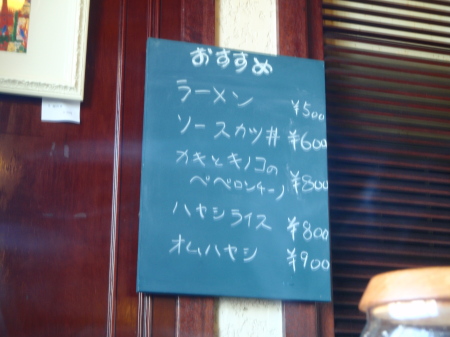 おすすめ
ラーメン ¥500
ソースカツ丼 ¥600
カキとキノコの
ペペロンチーノ ¥800
ハヤシライス ¥800
オムハヤシ ¥900